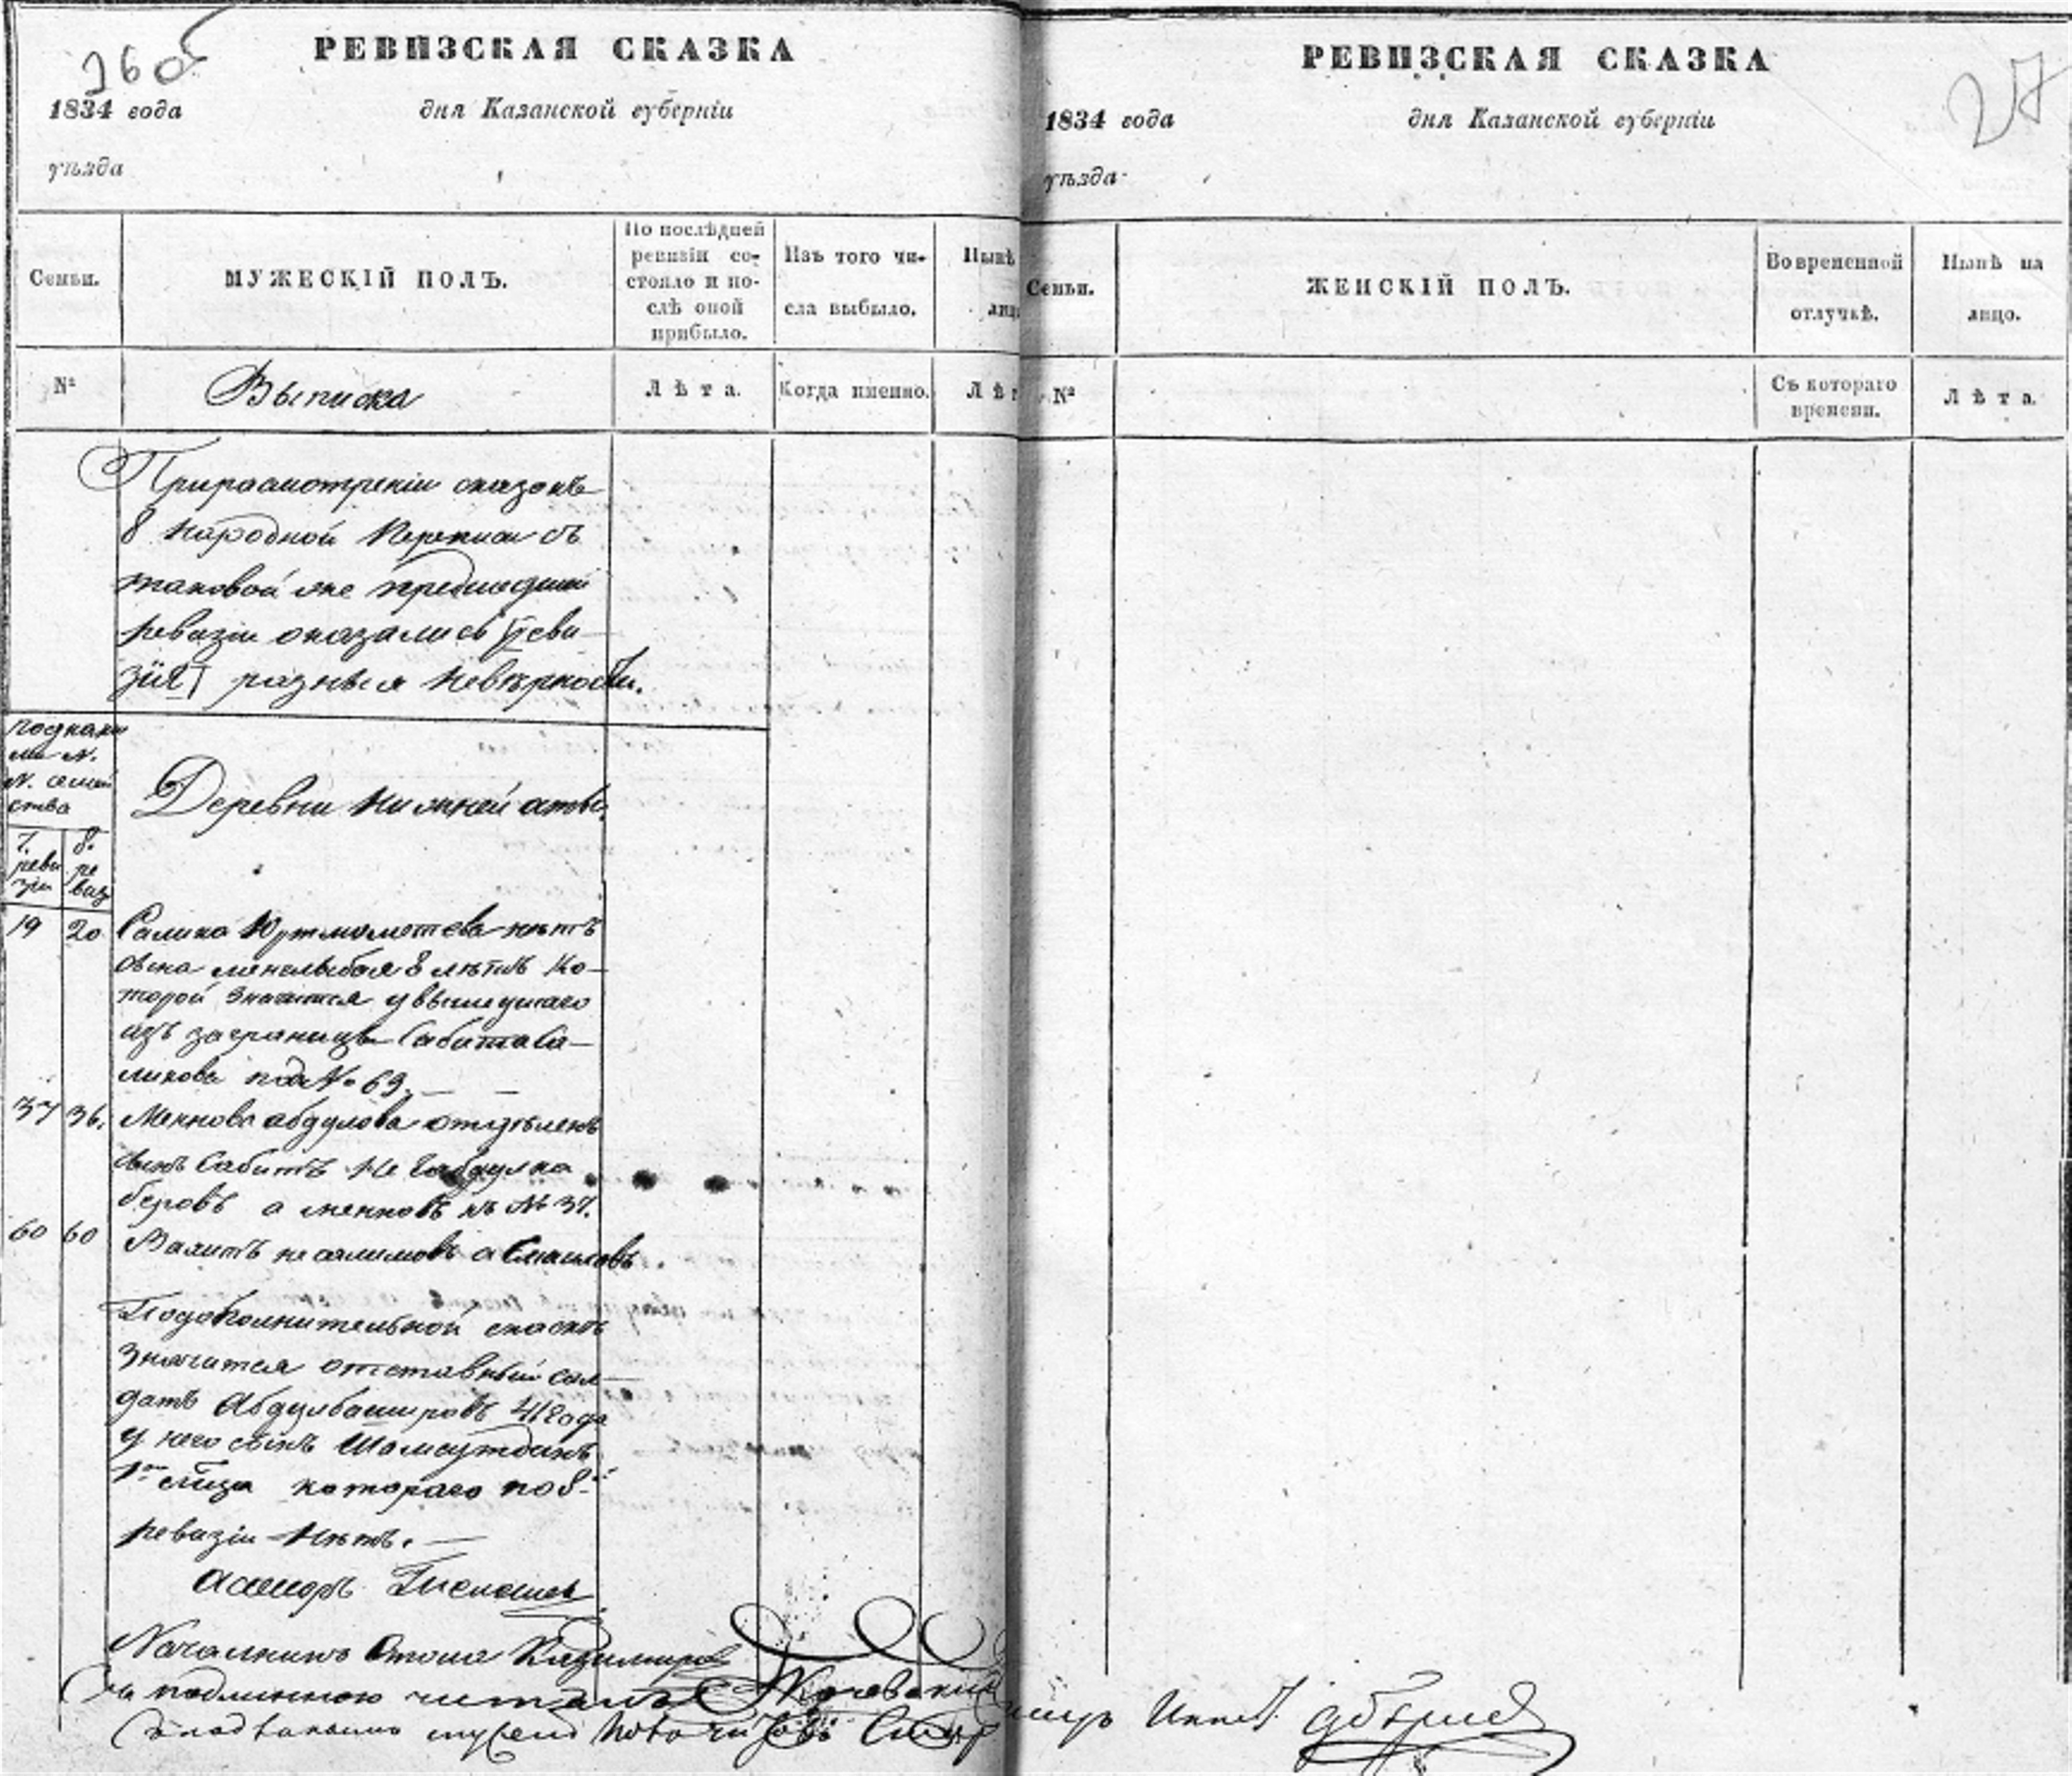 26об
РЕВИЗСКАЯ СКАЗКА
1834 года
дня Казанской губерніи
уѣзда
Семьи.
МУЖЕСКІЙ ПОЛЪ.
По послѣдней
ревизіи со-
стояло и по-
слѣ оной
прибыло.
Изъ того чи-
сла выбыло.
Нынѣ
лицо
№
Выписка
Лѣта.
Когда именно.
Лѣт
Прирасмотреніи сказокъ
8 Народной Переписи съ
таковой же предшедшей
ревизіи оказались
разныя Невѣрности.
N. семей
ства
7.
реви
зіи
8.
ре
виз
Деревни Нижней аты.
19 20 Салиха Юртмаметева нѣтъ
сына 8 лѣтъ ко-
торой значится увышедшаго
изъ заграницы Сабита Са-
лихова подъ № 69.
37 36. Менкова абдулова отдѣленъ
сынъ Сабитъ Не Габдулка
беровъ а менковъ къ № 37.
60 60 Валитъ не салимовъ а Смаиловъ.
Подополнительной сказкѣ
значится отставный сол-
датъ Абдулбашировъ 41 года
у него сынъ Шамсутдинъ
котораго по 8й
ревизіи Нѣтъ.
асесоръ
Началникъ Стола
Съ подлинною читалъ
РЕВИЗСКАЯ СКАЗКА
27
1834 года
дня Казанской губерніи
уѣзда
Семьи.
ЖЕНСКІЙ ПОЛЪ.
Во временной
отлучкѣ.
Нынѣ на
лицо.
№
Съ котораго
времени.
Лѣта.